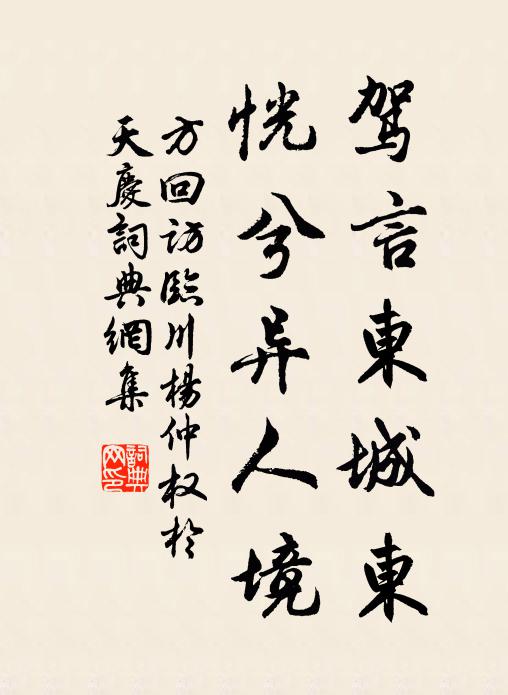 驾言東城東
恍兮异人境
方回访臨川楊仲权於
天慶詞典網集
詞典
网印